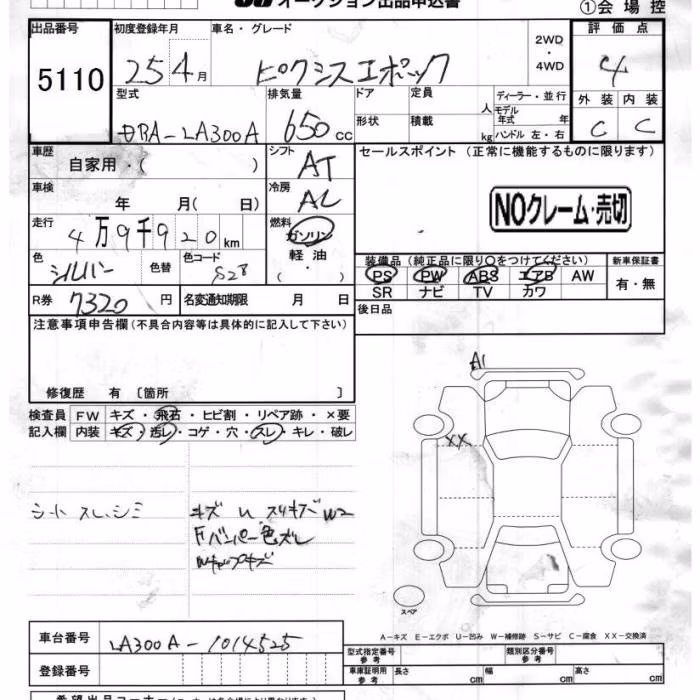 オークション出品申込書
①会場控
出品番号 初度登録年月 車名・グレード 2WD・4WD 評価点
5110 25 4月 ピクシスエポック 4
型式 排気量 ドア 定員 人 ディーラー・並行 外装 内装
DBA-LA300A 650cc 形状 積載 kg モデル年式 年 ハンドル 左・右 C C
車歴 自家用・( ) シフト AT セールスポイント (正常に機能するものに限ります)
車検 年 月( 日) 冷房 AC
NOクレーム・売切
走行 4万9千920km 燃料 ガソリン 軽油 ( ・ )
色 シルバー 色替 色コード S28
装備品(純正品に限り○をつけてください) 新車保証書
PS PW ABS エアB AW 有・無
SR ナビ TV カワ
R券 7320円 名変通知期限 月 日
後日品
注意事項申告欄(不具合内容等は具体的に記入して下さい)
修復歴 有 〔箇所 〕
検査員 FW キズ・飛石・ヒビ割・リペア跡・×要
記入欄 内装 キズ・汚レ・コゲ・穴・スレ・キレ・破レ
A1
XX
シートスレ、シミ
キズ U スリキズ W2
Fバンパー色ズレ
スペア
A-キズ E-エクボ U-凹み W-補修跡 S-サビ C-腐食 XX-交換済
車台番号 LA300A-1014525
登録番号
型式指定番号 参考 類別区分番号 参考
車庫証明用 参考 長さ cm 幅 cm 高さ cm